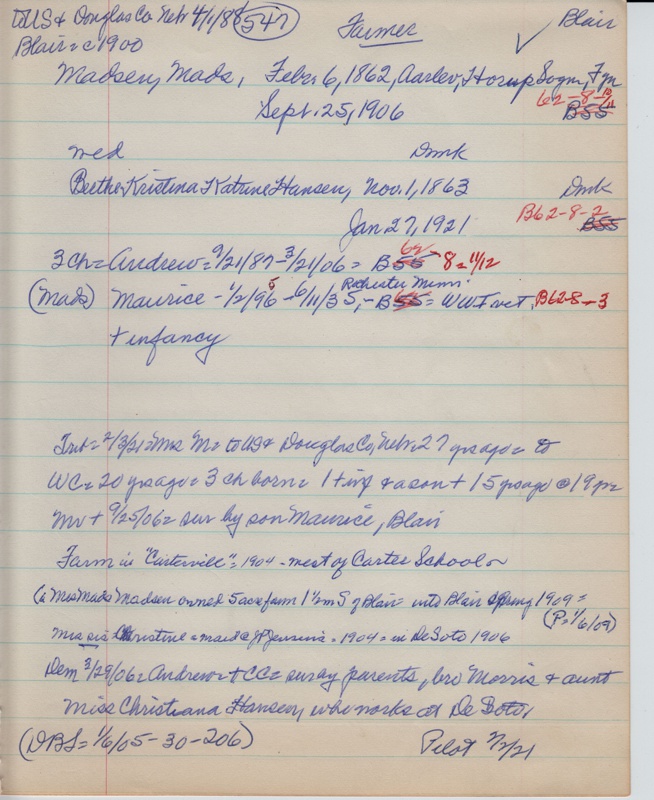 to US & Douglas Co Nebr 4/1/88 547 Farmer ✓ Blair
Blair = c1900
Madsen, Mads, Febr. 6, 1862, Aarlev, Horup Sogn, Fyn
62-8-
Sept. 25, 1906 BSS
wed Dmk
Berthe Kristina Katrine Hansen, Nov. 1, 1863 Dmk
B62-8-2
Jan 27, 1921 BSS
3 ch = Andrew = 9/21/87 - 3/21/06 = BSS 62- 8 = 11/12
(Mads) Maurice - 1/2/96 5 - 6/11/35, Rochester Minn - BSS = WWI vet, B62-8-3
+ infancy
Trib = 2/3/21 = Mrs M = to US & Douglas Co, Nebr. 27 yrs ago = to
WC = 20 yrs ago = 3 ch born = 1 + inf & a son + 15 yrs ago @ 19 yrs
Mr + 9/25/06 = sur by son Maurice, Blair
Farm in "Carterville" = 1904 - west of Carter School
(a Mrs Mads Madsen owned 5 acre farm 1 1/2 m S of Blair = into Blair Spring 1909 =
(P = 1/6/09)
Mrs sis = Christine = maid @ JP Jensens = 1904 = in DeSoto 1906
Dem 3/29/06 = Andrew = + CC = sur by parents, bro Morris & aunt
Miss Christiana Hansen, who works at De Soto
(DBS = 1/6/05-30-206) Pilot